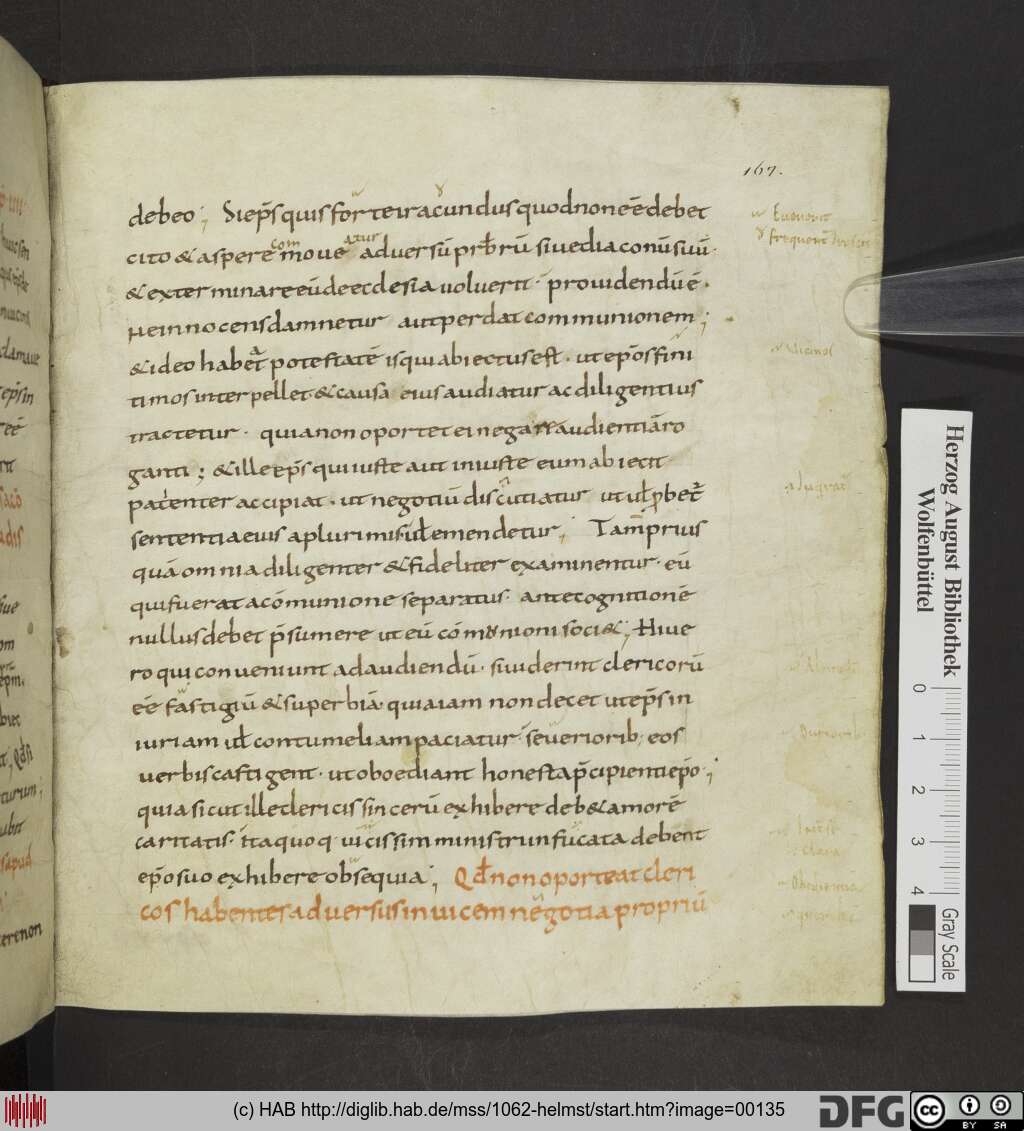 167.
debeo; Si ep̄s quis forte iracundus quod non eē debet
cito & aspere commoueatur aduersū prb̄rū siue diaconū suū·
& exterminare eū de ecclesia uoluerit· prouidendū ē·
ne innocens damnetur aut perdat communionem;
& ideo habet potestatē is qui abiectus est· ut ep̄os fini
timos interpellet & causa eius audiatur ac diligentius
tractetur· quia non oportet ei negari audientiā ro
ganti; & ille ep̄s qui iuste aut iniuste eum abiecit
patienter accipiat· ut negotiū discutiatur ut uł ꝓbet̄
sententia eius a plurimis uł emendetur; Tam̄ prius
quā omnia diligenter & fideliter examinentur· eū
qui fuerat a cōmunione separatus· ante cognitionē
nullus debet p̄sumere ut eū cōmunioni soci&; Hi ue
ro qui conueniunt ad audiendū· si uiderint clericorū
eē fastigiū & superbiā· quia iam non decet ut ep̄s in
iuriam uł contumeliam paciatur· seuerioribus eos
uerbis castigent· ut oboediant honesta p̄cipienti ep̄o·;
quia sicut ille clericis sincerū exhibere deb& amorē
caritatis· ita quoq uicissim ministri infucata debent
ep̄o suo exhibere obsequia; Qd̄ non oporteat cleri
cos habentes aduersus inuicem negotia propriū
Herzog August Bibliothek
Wolfenbüttel
0 1 2 3 4
Gray Scale
(c) HAB http://diglib.hab.de/mss/1062-helmst/start.htm?image=00135
DFG
cc BY SA